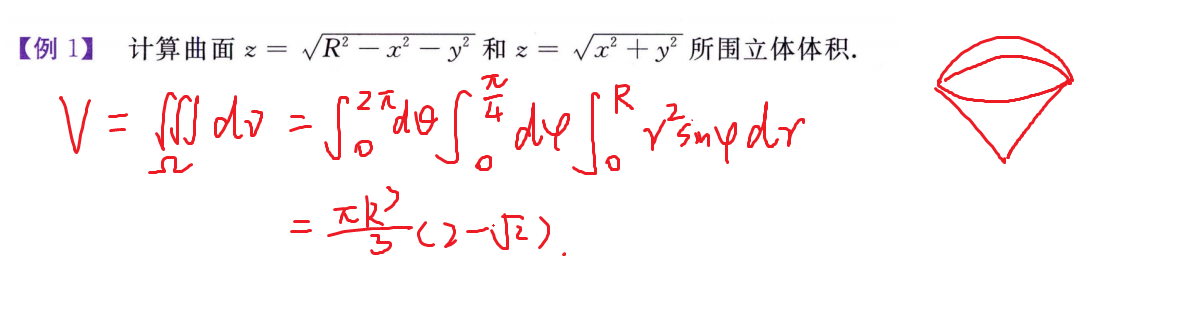 【例 1】 计算曲面 z = √(R² − x² − y²) 和 z = √(x² + y²) 所围立体体积.
V = ∭_Ω dv = ∫₀^{2π} dθ ∫₀^{π/4} dφ ∫₀^R r² sinφ dr
= πR³/3 (2−√2).